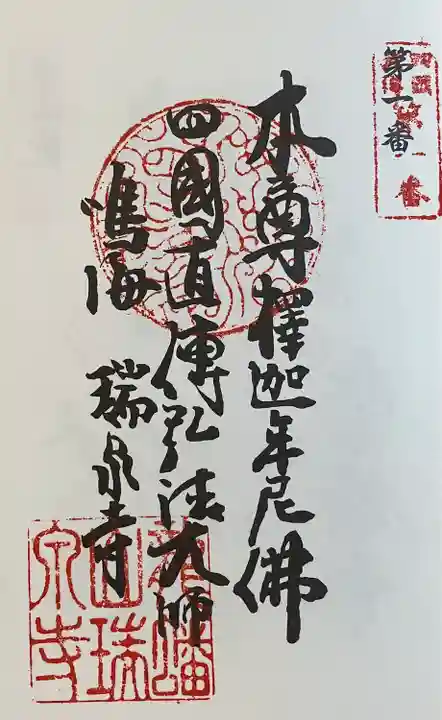 第一番
本尊釋迦牟尼佛
四國直傳弘法大師
鳴海 瑞泉寺
龍蟠
山瑞
泉寺